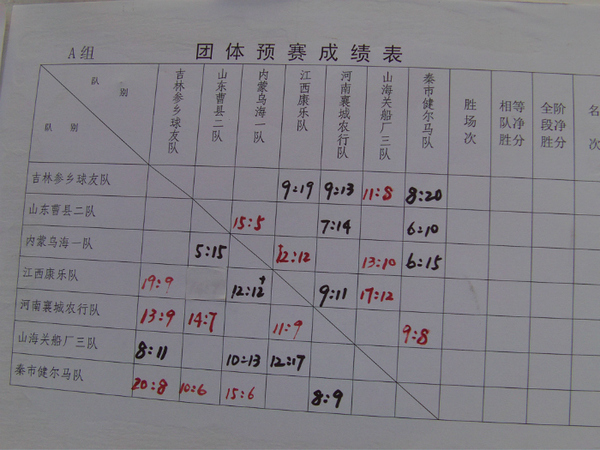 A组 团体预赛成绩表
队别 队别 吉林参乡球友队 山东曹县二队 内蒙乌海一队 江西康乐队 河南襄城农行队 山海关船厂三队 秦市健尔马队 胜场次 相等队净胜分 全阶段净胜分 名次
吉林参乡球友队 9:19 9:13 11:8 8:20
山东曹县二队 15:5 7:14 6:10
内蒙乌海一队 5:15 12:12 13:10 6:15
江西康乐队 19:9 12:12+ 9:11 17:12
河南襄城农行队 13:9 14:7 11:9 9:8
山海关船厂三队 8:11 10:13 12:17
秦市健尔马队 20:8 10:6 15:6 8:9